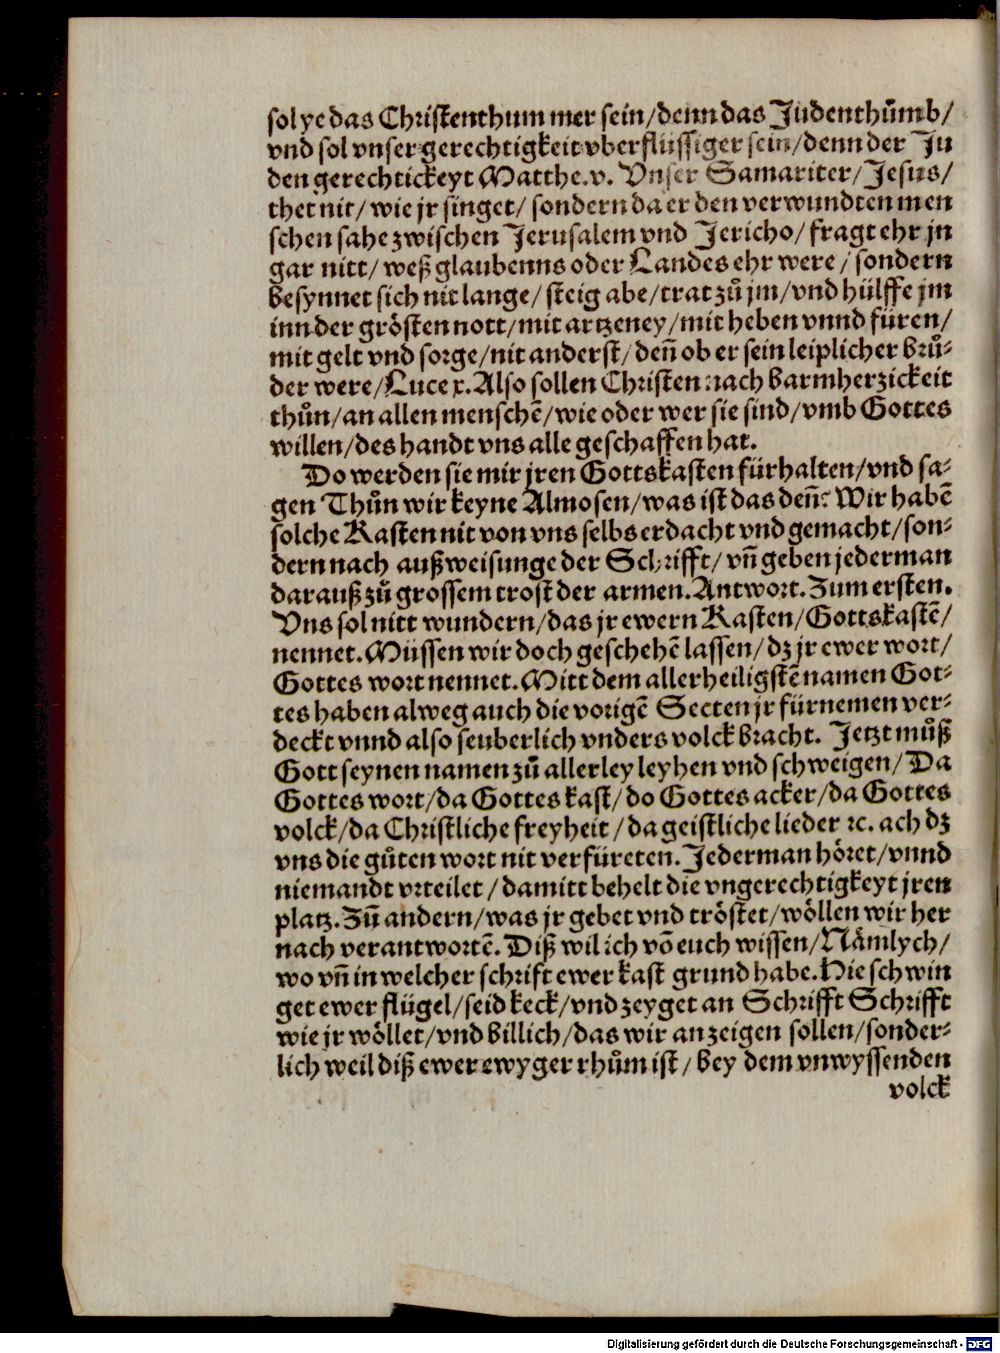 sol ye das Christenthum mer sein/denn das Judenthůmb/
vnd sol vnser gerechtigkeit vberflüssiger sein/denn der Ju
den gerechtickeyt Matthe.v. Vnser Samariter/Jesus/
thet nit/wie jr singet/sondern da er den verwundten men
schen sahe zwischen Jerusalem vnd Jericho/fragt ehr jn
gar nitt/weß glaubenns oder Landes ehr were/sondern
besynnet sich nit lange/steig abe/trat zů jm/vnd hülffe jm
inn der grösten nott/mit artzeney/mit heben vnnd füren/
mit gelt vnd sorge/nit anderst/deñ ob er sein leiplicher brů-
der were/Luce x. Also sollen Christen nach barmherzickeit
thůn/an allen menschē/wie oder wer sie sind/vmb Gottes
willen/des handt vns alle geschaffen hat.
Do werden sie mir jren Gottskasten fürhalten/vnd sa-
gen Thůn wir keyne Almosen/was ist das deñ? Wir habē
solche Kasten nit von vns selbs erdacht vnd gemacht/son-
dern nach außweisunge der Schrifft/vñ geben jederman
darauß zů grossem trost der armen. Antwort. Zum ersten.
Vns sol nitt wundern/das jr ewern Kasten/Gottskastē/
nennet. Müssen wir doch geschehē lassen/dz jr ewer wort/
Gottes wort nennet. Mitt dem allerheiligstē namen Got-
tes haben alweg auch die vorigē Secten jr fürnemen ver-
deckt vnnd also seuberlich vnders volck bracht. Jetzt můß
Gott seynen namen zů allerley leyhen vnd schweigen/Da
Gottes wort/da Gottes kast/do Gottes acker/da Gottes
volck/da Christliche freyheit/da geistliche lieder ꝛc. ach dz
vns die gůten wort nit verfüreten. Jederman höret/vnnd
niemandt vrteilet/damitt behelt die vngerechtigkeyt jren
platz. Zū andern/was jr gebet vnd tröstet/wöllen wir her
nach verantwortē. Diß wil ich vō euch wissen/Nämlych/
wo vñ in welcher schrift ewer kast grund habe. Hie schwin
get ewer flügel/seid keck/vnd zeyget an Schrifft Schrifft
wie jr wöllet/vnd billich/das wir anzeigen sollen/sonder-
lich weil diß ewer ewyger rhům ist/bey dem vnwyssenden
volck
Digitalisierung gefördert durch die Deutsche Forschungsgemeinschaft - DFG